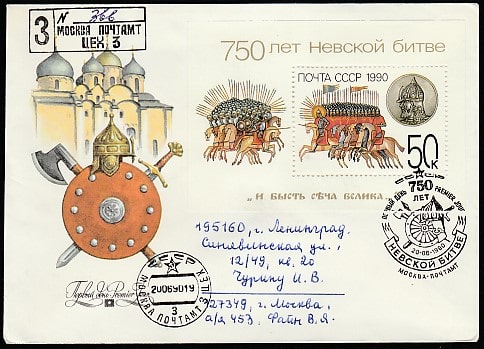 З
N 366
МОСКВА ПОЧТАМТ
ЦЕХ 3
750 ЛЕТ НЕВСКОЙ БИТВЕ
ПОЧТА СССР 1990
50К
„И БЫСТЬ СѢЧА ВЕЛИКА...
ПЕРВЫЙ ДЕНЬ PREMIER JOUR
750
ЛЕТ
20-06-1990
НЕВСКОЙ БИТВЕ
МОСКВА-ПОЧТАМТ
195160, г. Ленинград,
Синявинская ул.,
12/49, кв. 20
Чурину И. В.
127349, г. Москва,
а/я 453, Файн В.Я.
Первый день Premier jour
20069019
МОСКВА ПОЧТАМТ ЦЕХ
3